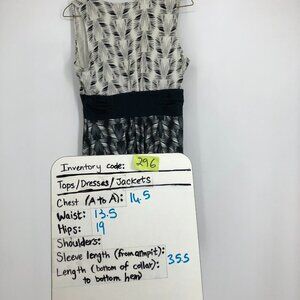 Inventory code: 296
Tops/Dresses/Jackets
Chest (A to A): 14.5
Waist: 13.5
Hips: 19
Shoulders:
Sleeve length (from armpit):
Length (bottom of collar: 35.5
to bottom hem)